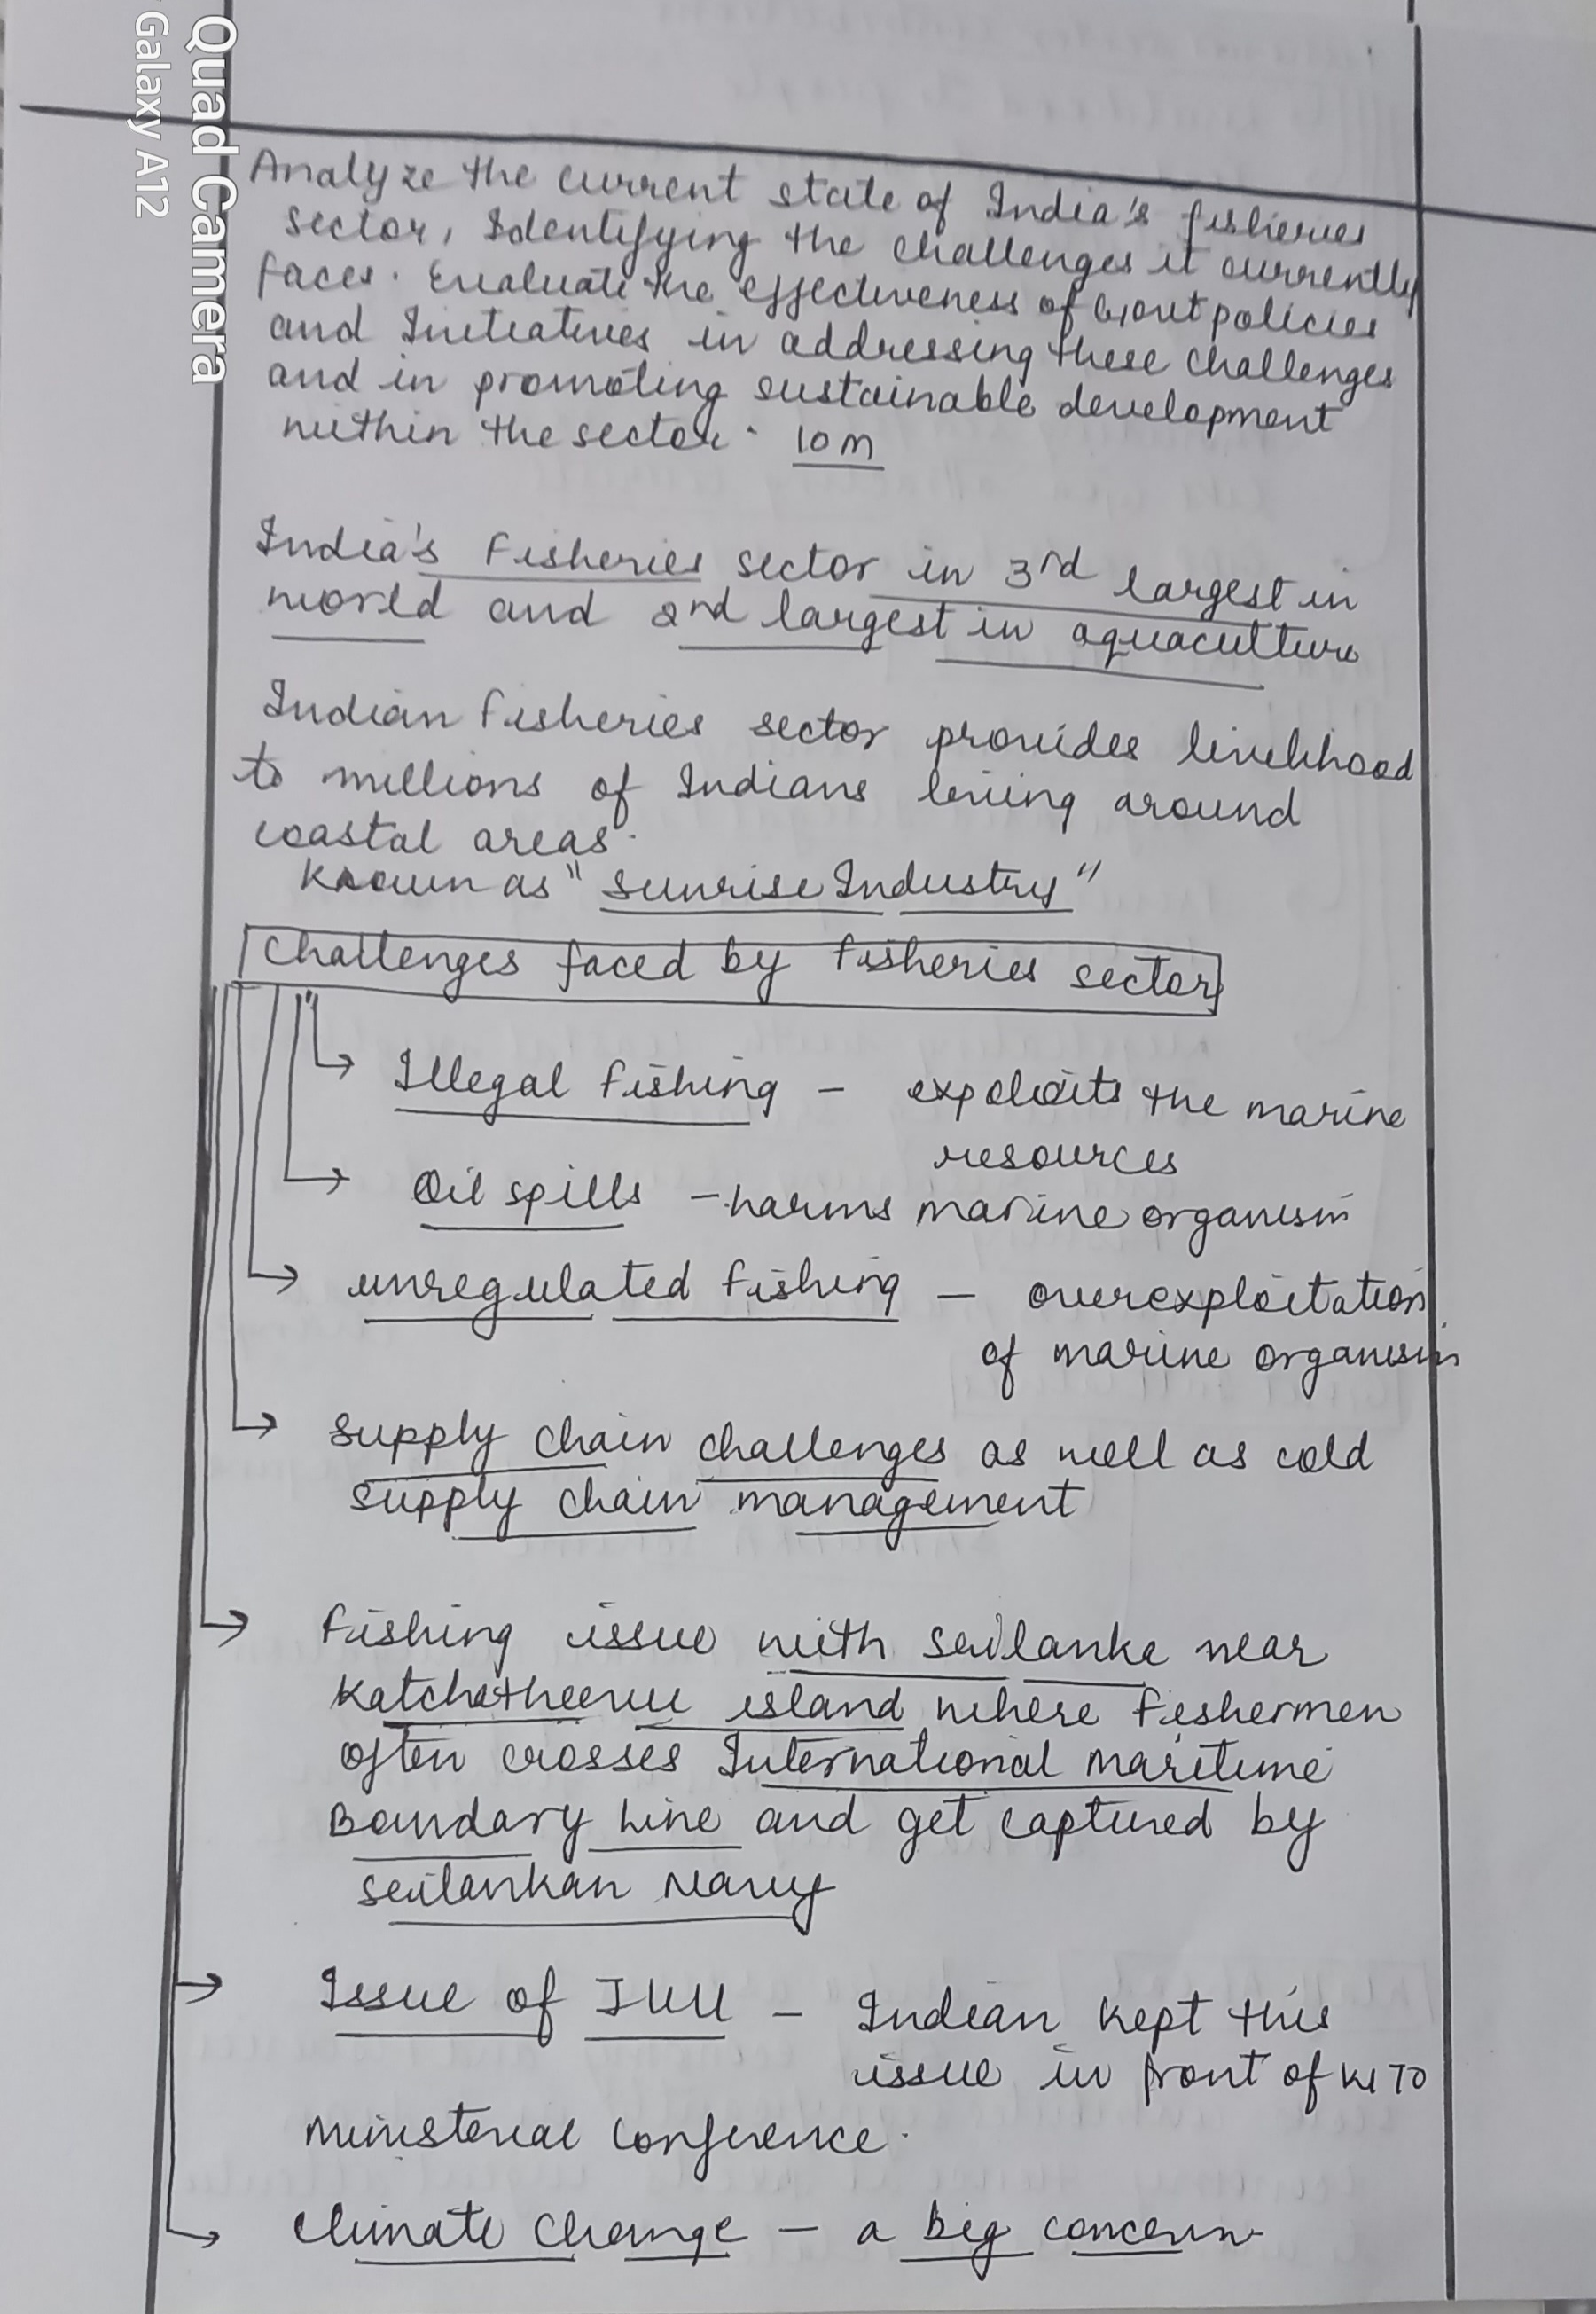 Quad Camera
Galaxy A12
Analyze the current state of India's fisheries
sector, Identifying the challenges it currently
faces. Evaluate the effectiveness of Govt policies
and Initiatives in addressing these challenges
and in promoting sustainable development
within the sector. 10 m
India's Fisheries sector in 3rd largest in
world and 2nd largest in aquaculture
Indian Fisheries sector provides livelihood
to millions of Indians living around
coastal areas.
Known as "Sunrise Industry"
Challenges faced by Fisheries sector
Illegal Fishing - exploits the marine
resources
Oil spills - harms marine organism
unregulated Fishing - overexploitation
of marine organism
Supply chain challenges as well as cold
supply chain management
Fishing issue with Srilanka near
Katchatheevu island where Fishermen
often crosses International Maritime
Boundary Line and get captured by
Srilankan Navy
Issue of IUU - Indian kept this
issue in front of WTO
Ministerial Conference.
Climate Change - a big concern